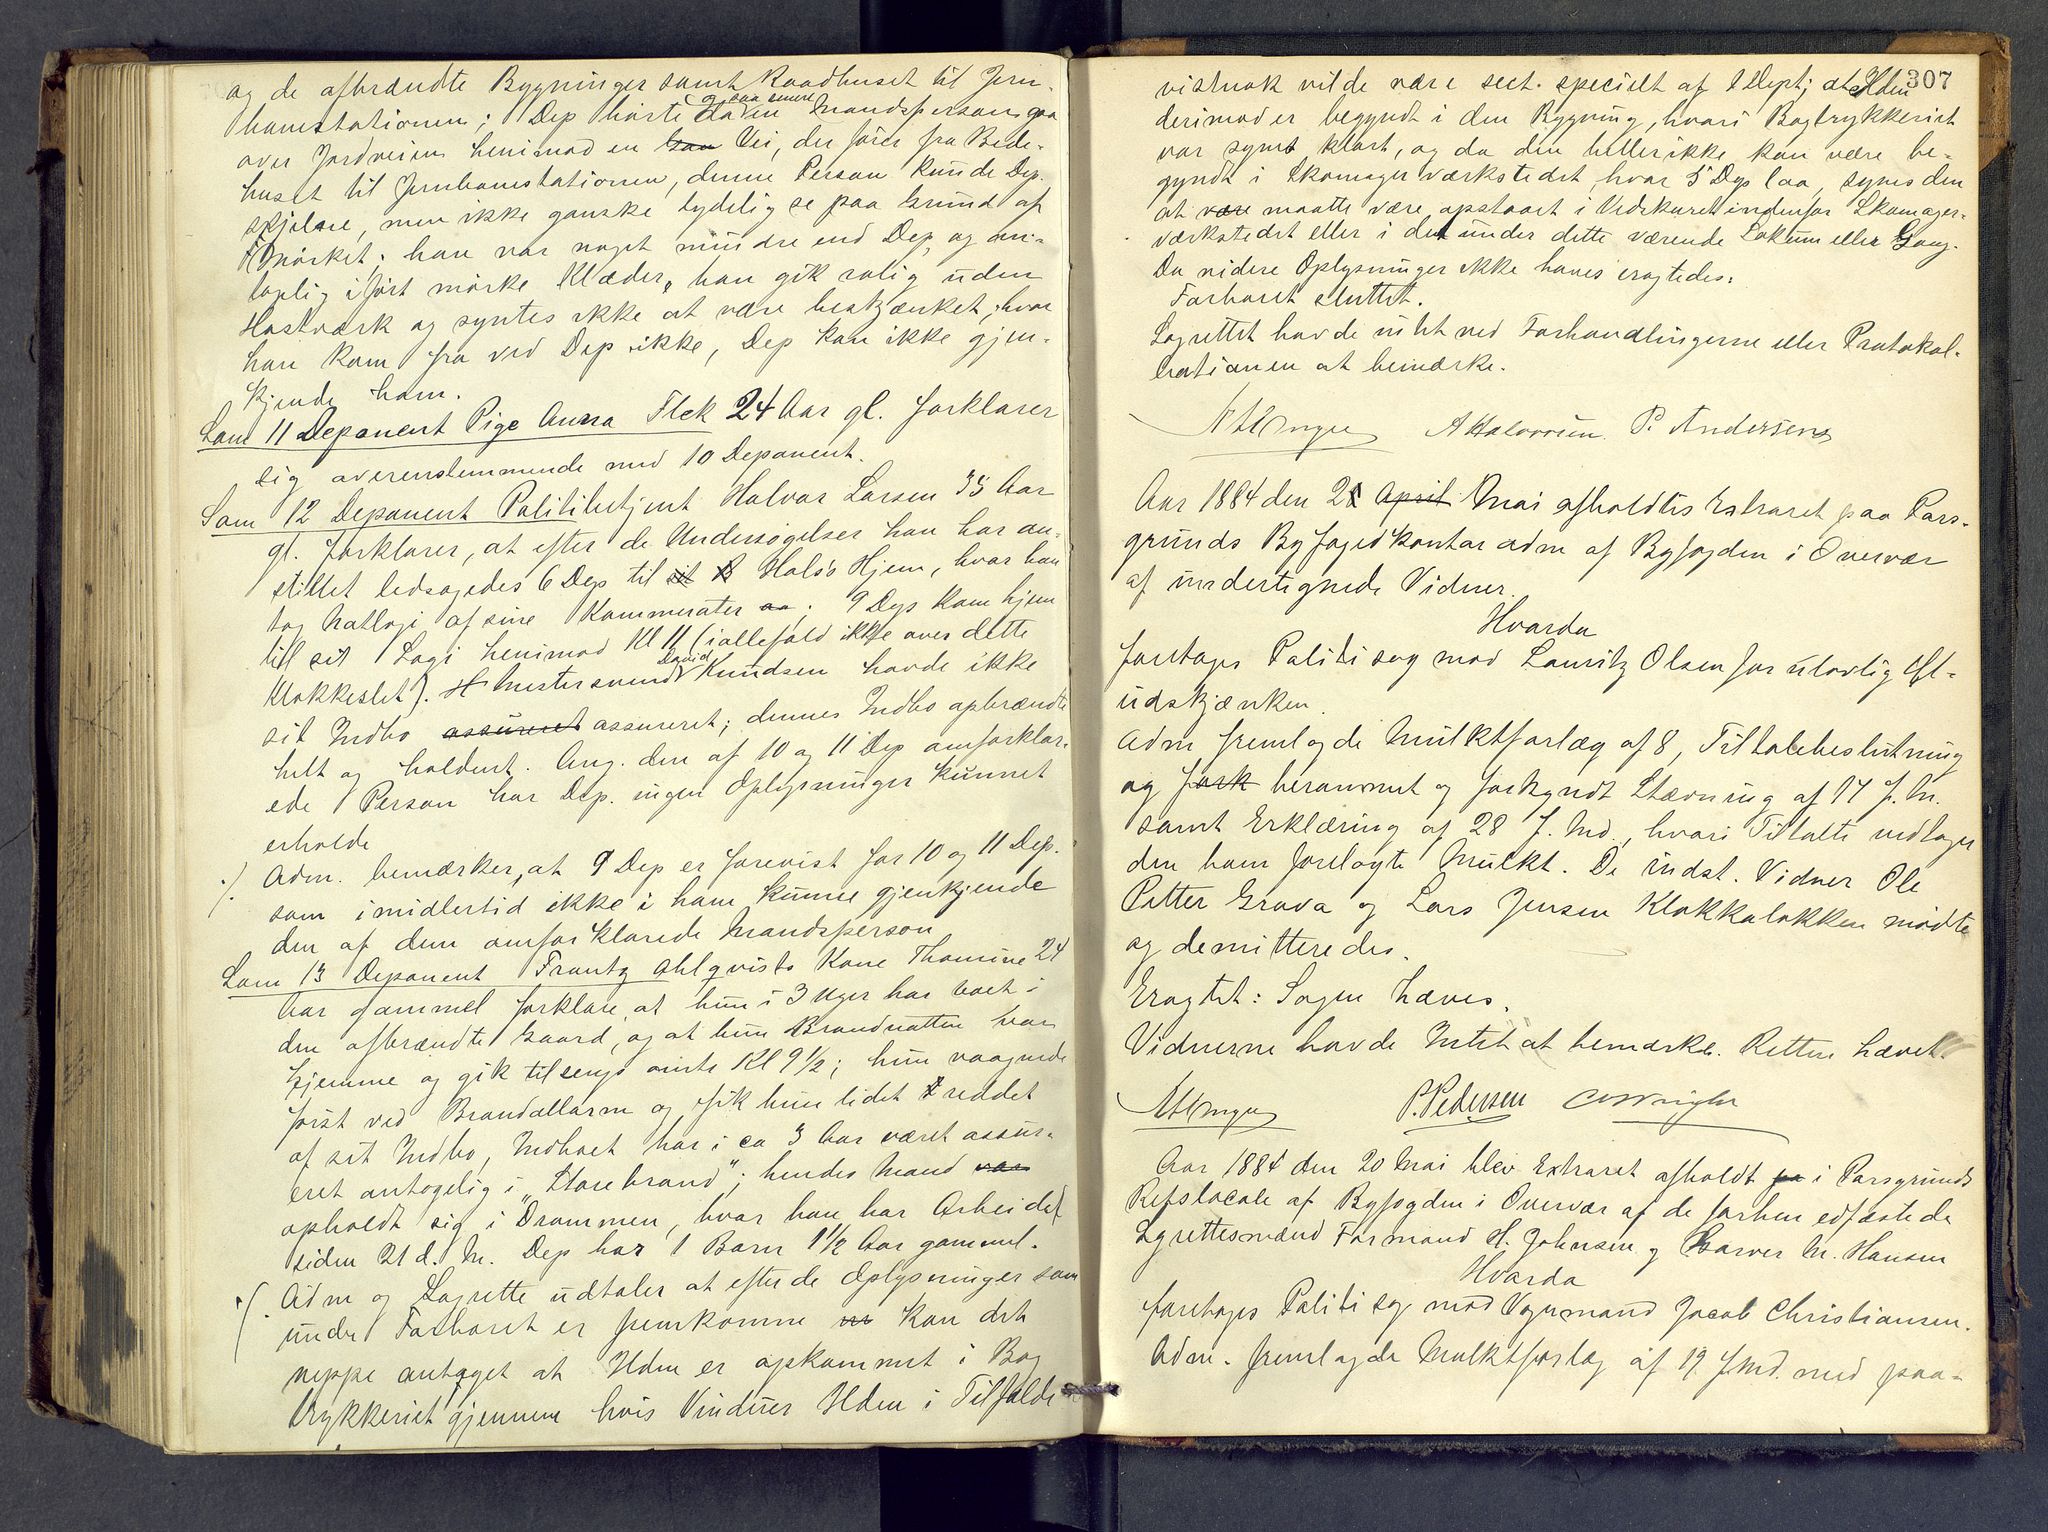 og de afbrændte Bygninger samt Raadhuset til Jern-
banestationen; Dep hørte og saa senere da en Mandsperson gaa
over Jordveien henimod en Vei, der fører fra Bede-
huset til Jernbanestationen, denne Person kunde Dep.
skjelne, men ikke ganske tydelig se paa Grund af
Mørket; han var noget mindre end Dep, og an-
tagelig iført mørke Klæder, han gik rolig uden
Hastværk og syntes ikke at være beskjænket; hvor
han kom fra ved Dep ikke, Dep kan ikke gjen-
kjende ham.
Som 11 Deponent Pige Anna Flek 24 Aar gl. forklarer
sig overensstemmende med 10 Deponent.
Som 12 Deponent Politibetjent Halvor Larsen 35 Aar
gl. forklarer, at efter de Undersøgelser han har an-
stillet ledsagedes 6 Dep til Hals's Hjem, hvor han
tog Natlogi af sine Kammerater; 9 Dep kom hjem
til sit Logi henimod Kl 11 (iallefald ikke over dette
Klokkeslet). Mestersvend David Knudsen havde ikke
sit Indbo assureret assureret; dennes Indbo opbrændte
helt og holdent. Ang. den af 10 og 11 Dep omforklar-
ede Person har Dep. ingen Oplysninger kunnet
erholde
./. Adm. bemærker, at 9 Dep er forevist for 10 og 11 Dep.
som imidlertid ikke i ham kunne gjenkjende
den af dem omforklarede Mandsperson
Som 13 Deponent Frantz Ahlqvists Kone Thomine 24
Aar gammel forklare, at hun i 3 Uger har boet i
den afbrændte Gaard, og at hun Brandnatten var
hjemme og gik tilsengs omtr Kl 9½; hun vaagnede
først ved Brandallarm og fik hun lidet reddet
af sit Indbo, Indboet har i ca 3 Aar været assur-
eret antagelig i "Storebrand"; hendes Mand var
opholdt sig i Drammen, hvor han har Arbeidet
siden 21 d. M. Dep har 1 Barn 1½ Aar gammel.
./. Adm og Lagrette udtaler at efter de Oplysninger som
under Forhøret er fremkomne kan det
neppe antaget at Ilden er opkommet i Bog
trykkeriet gjennem hvis Vinduer Ilden i Tilfælde
307
vistnok vilde være seet. specielt af 1 Dept; at Ilden
derimod er begyndt i den Bygning, hvori Bogtrykkeriet
var synes klart, og da den heller ikke kan være be-
gyndt i Skomagerværkstedet, hvor 5 Dep laa, synes den
at være maatte være opstaaet i Vedskuret indenfor Skomager-
værkstedet eller i det under dette værende Lokum eller Gang.
Da videre Oplysninger ikke haves eragtedes:
Forhøret sluttet.
Lagrettet havde intet ved Forhandlingerne eller Protokol-
lationen at bemærke.
A Halvorsen. P. Andersen
Aar 1884 den 21 April Mai afholdtes Extraret paa Pors-
grunds Byfogedkontor adm af Byfogden i Overvær
af undertegnede Vidner.
Hvorda
foretoges Politisag mod Lauritz Olsen for ulovlig Øl-
udskjænken.
Adm fremlagde Mulktforlæg af 8, Tiltalebeslutning
og fork berammet og forkyndt Stævning af 17 f. M.
samt Erklæring af 28 f. Md, hvori Tiltalte vedtager
den ham forelagte Mulkt. De indst. Vidner Ole
Petter Grava og Lars Jensen Klokkaløkken mødte
og demitteredes.
Eragtet: Sagen hæves.
Vidnerne havde Intet at bemærke. Retten hævet.
P. Pedersen C Wright
Aar 1884 den 20 Mai blev Extraret afholdt paa i Porsgrunds
Retslocale af Byfogden i Overvær af de forhen edfæstede
Lgrettesmænd Formand H. Johnsen og Garver M. Hansen
Hvorda
foretoges Politisag mod Vognmand Jacob Christiansen.
Adm. fremlagde Mulktforlæg af 19 f. Md. med paa-